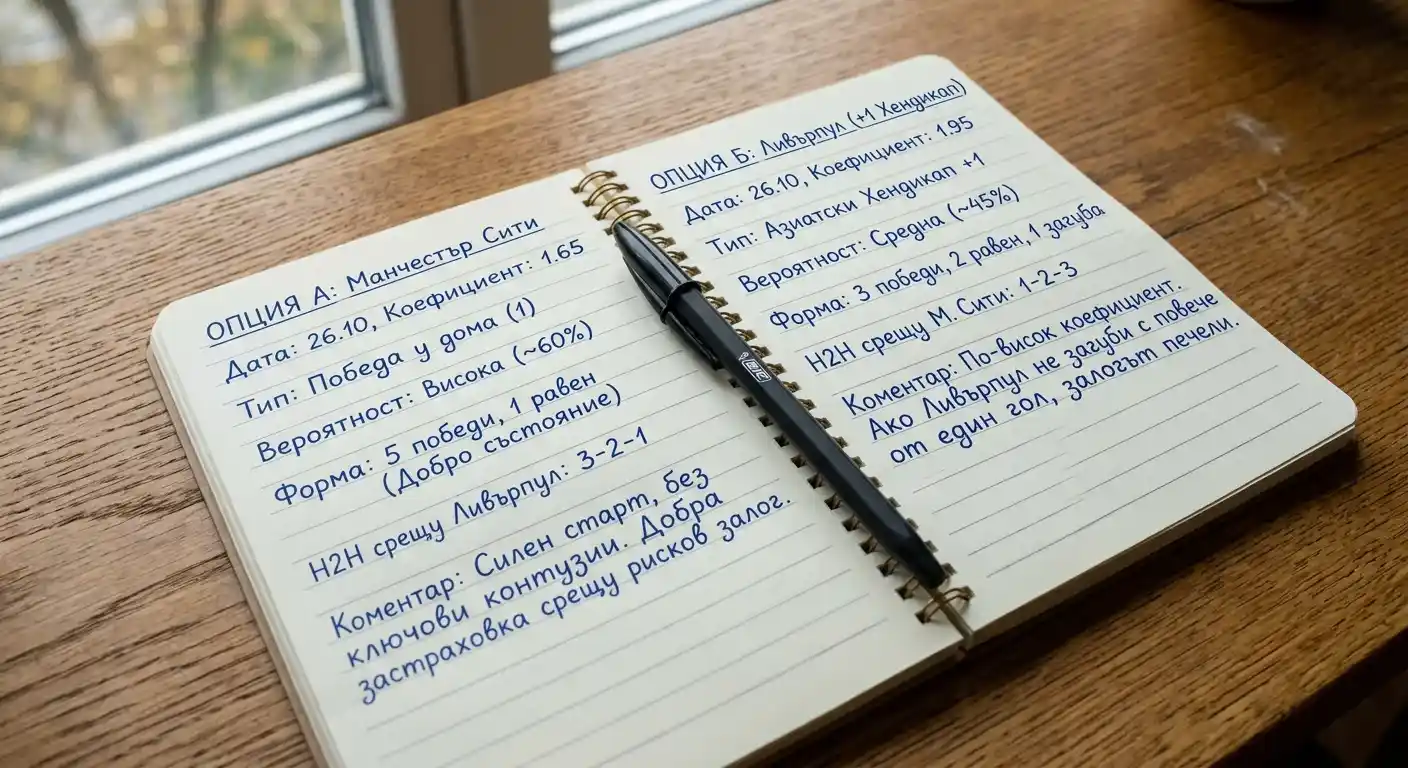 ОПЦИЯ А: Манчестър Сити
Дата: 26.10, Коефициент: 1.65
Тип: Победа у дома (1)
Вероятност: Висока (~60%)
Форма: 5 победи, 1 равен
(Добро състояние)
H2H срещу Ливърпул: 3-2-1
Коментар: Силен старт, без
ключови контузии. Добра
застраховка срещу рисков залог.
ОПЦИЯ Б: Ливърпул (+1 Хендикап)
Дата: 26.10, Коефициент: 1.95
Тип: Азиатски Хендикап +1
Вероятност: Средна (~45%)
Форма: 3 победи, 2 равен, 1 загуба
H2H срещу М. Сити: 1-2-3
Коментар: По-висок коефициент.
Ако Ливърпул не загуби с повече
от един гол, залогът печели.